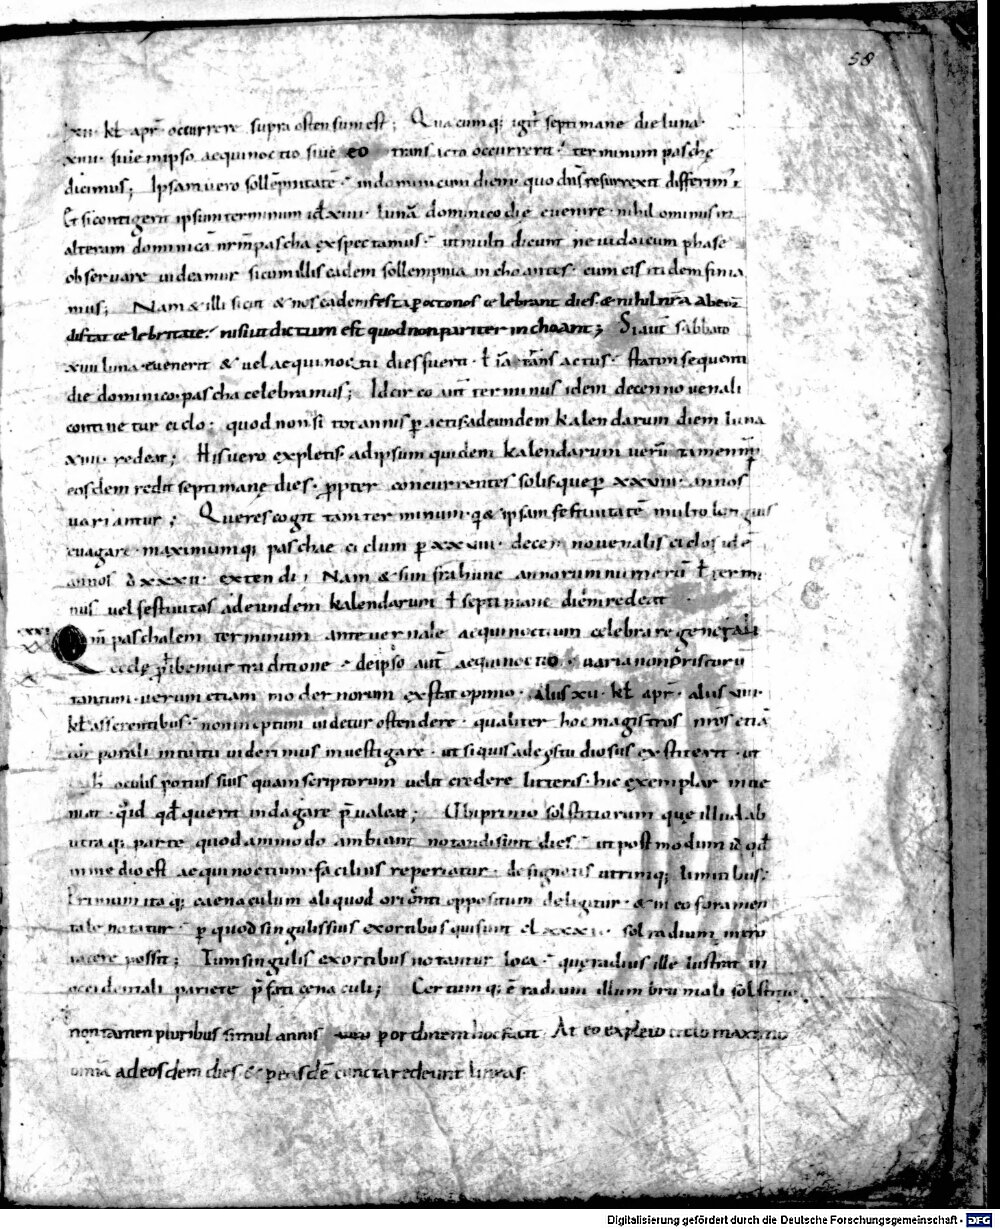 58
xii· kł apr̄ occurrere supra ostensum est; Quacumq; igit̄ septimane die luna·
xiiii· siue in ipso aequinoctio siue eo transacto occurrerit· terminum paschę
dicimus; Ipsam uero sollēpnitatē· in dominicum diem· quo dn̄s resurrexit differim̄;
Et si contigerit ipsum terminum id xiiii· lunā dominico die euenire· nihilominus in
alteram dominicā nr̄m pascha exspectamus· ut multi dicunt ne iudaicum phase
obseruare uideamur si cum illis eadem sollempnia inchoantes· cum eis itidem finia
mus; Nam & illi sicut & nos eadem festa p octonos celebrant dies & nihil nr̄a ab eor̄
distat celebritate· nisi ut dictum est quod non pariter inchoant; Si aut̄ sabbato
xiiii luna euenerit & uel aequinoctii dies fuerit· ł iā trāns actus· statim sequenti
die dominico pascha celebramus; Idcirco aut̄ terminus idem decennouenali
continetur ciclo· quod non si tot annis p actis ad eundem kalendarum diem luna
xiiii· redeat; His uero expletis ad ipsum quidem kalendarum uerū tamen n̄
eosdem redit septimanę dies· p̱pter concurrentes solis· que p xxviii· annos
uariantur; Quę res cogit tam terminum· q̄ & ipsam festiuitatē multo longius
euagari· maximumq; paschae ciclum p xxviii· decennouenalis ciclos id ē
annos dxxxii· extendi; Nam & si infra hunc annorum numerū ł termi
nus uel festiuitas ad eundem kalendarum ł septimane diem redeat
Qm̄ paschalem terminum ante uernale aequinoctium celebrare generali
ęcclę p̱hibemur traditione· de ipso aut̄ aequinoctio· uaria non priscorū
tantum· uerum etiam modernorum exstitit opinio· aliis xii· kł apr̄· aliis xiii·
kł asserentibus· non ineptum uidetur ostendere· qualiter hoc magistros nr̄os etiā
corporali intuitu uiderimus inuestigare· ut si quis adeo studiosus exstiterit· ut
oculis potius suis quam scriptorum uelit credere litteris· hic exemplar inue
niat· q̇id qd̄ querit indagare p̄ualeat; Ubi primo solstitiorum quę illud ab
utraq; parte quodammodo ambiunt notandi sunt dies· ut postmodum id qd̄
in medio est aequinoctium facilius reperiatur· designatis utrimq; limitibus·
Primum itaq; caenaculum aliquod orienti oppositum deligitur· & in eo foramen
tale notatur· p quod singulis sius exortibus qui sunt clxxxi· sol radium intro
iacere possit; Tum singulis exortibus notantur loca· quę radius ille lustrat in
occidentali pariete p̄fati cenaculi; Certumq; ē radium illum brumali solstitio
non tamen pluribus simul annis p ordinem hoc facit· At eo expleto ciclo maximo
omīa ad eosdem dies & p easdē cuncta redeunt lineas·
Digitalisierung gefördert durch die Deutsche Forschungsgemeinschaft - DFG